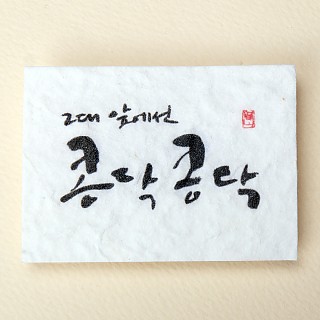 그대 앞에선
콩닥콩닥